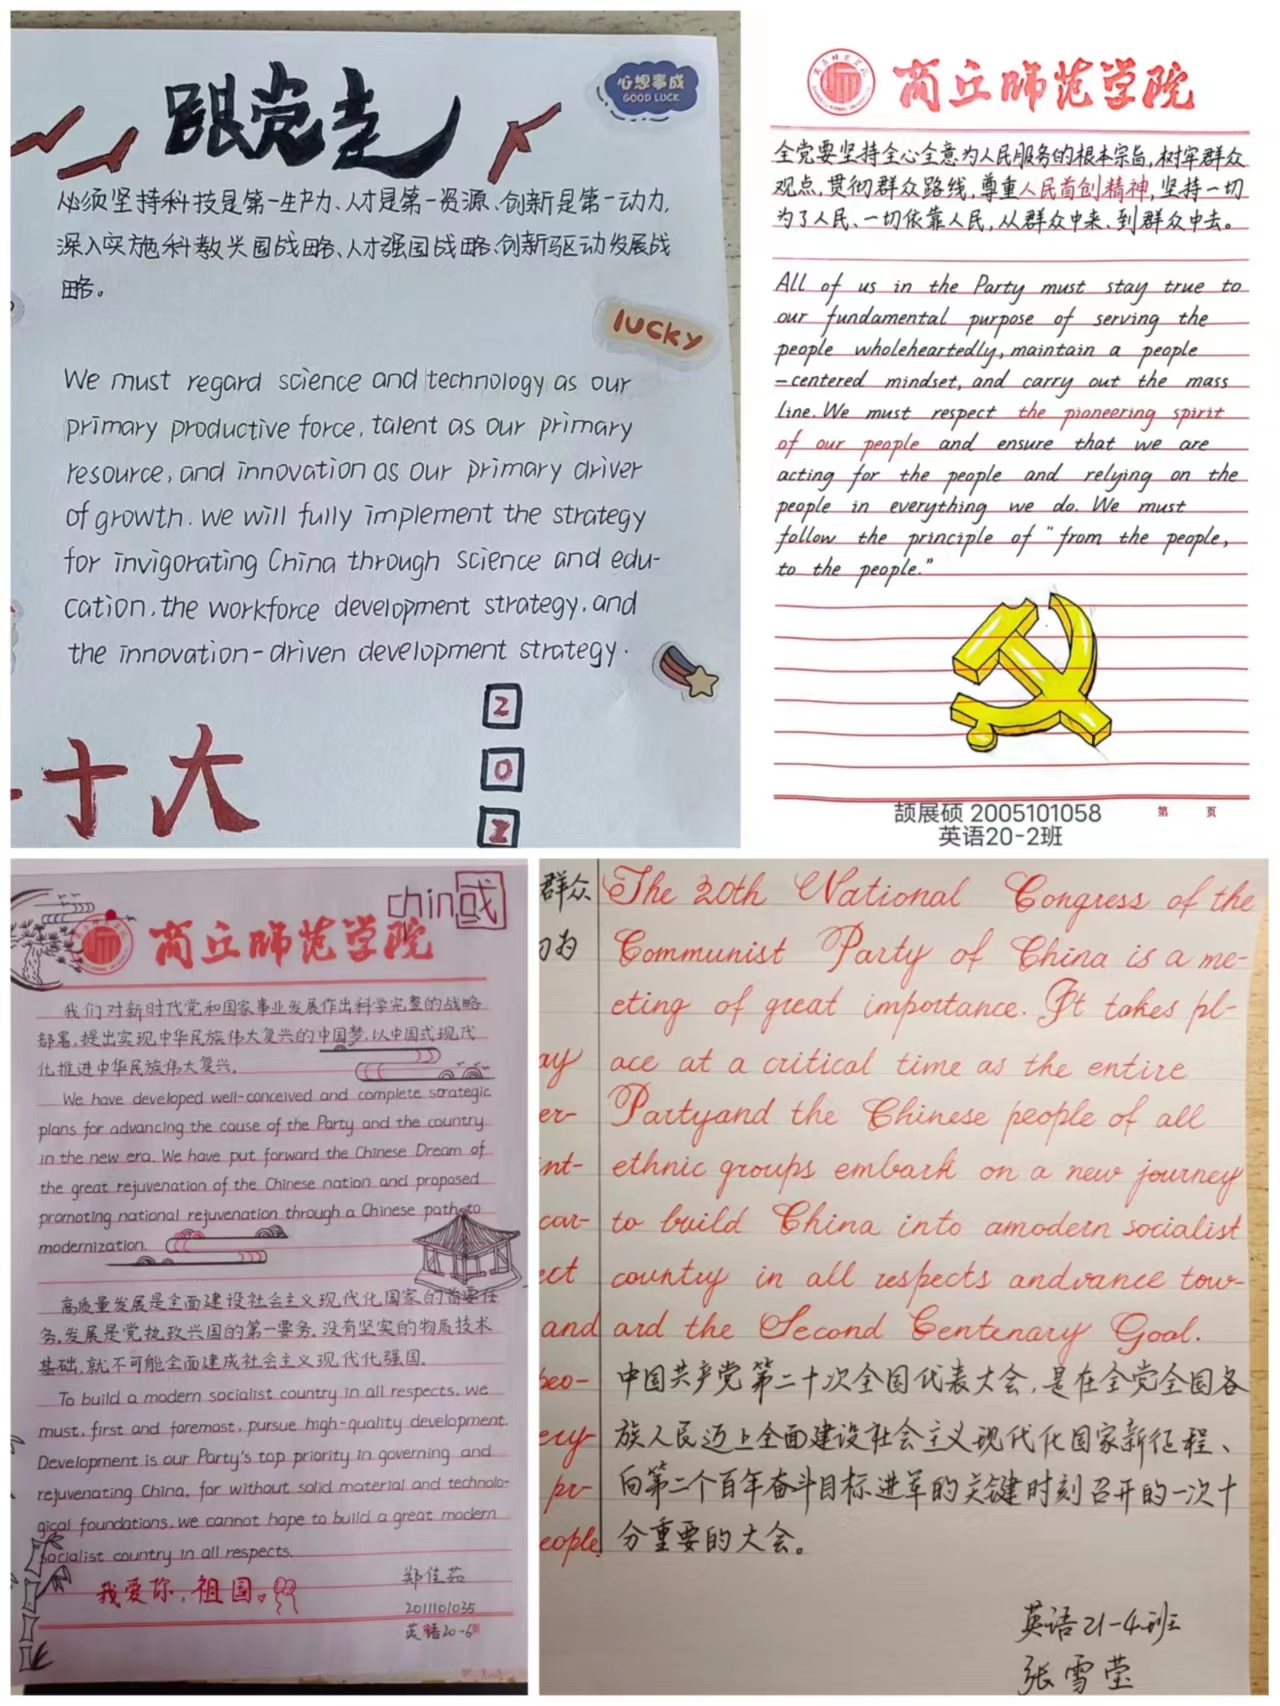 跟党走
心想事成
GOOD LUCK
必须坚持科技是第一生产力、人才是第一资源、创新是第一动力,
深入实施科教兴国战略、人才强国战略、创新驱动发展战
略。
lucky
We must regard science and technology as our
primary productive force, talent as our primary
resource, and innovation as our primary driver
of growth. We will fully implement the strategy
for invigorating China through science and edu-
cation, the workforce development strategy, and
the innovation-driven development strategy.
2
0
2
十大
商丘师范学院
全党要坚持全心全意为人民服务的根本宗旨,树牢群众
观点,贯彻群众路线,尊重人民首创精神,坚持一切
为了人民、一切依靠人民,从群众中来、到群众中去。
All of us in the Party must stay true to
our fundamental purpose of serving the
people wholeheartedly, maintain a people
-centered mindset, and carry out the mass
line. We must respect the pioneering spirit
of our people and ensure that we are
acting for the people and relying on the
people in everything we do. We must
follow the principle of "from the people,
to the people."
颉展硕 2005101058
英语20-2班
第 页
china
商丘师范学院
我们对新时代党和国家事业发展作出科学完整的战略
部署,提出实现中华民族伟大复兴的中国梦,以中国式现代
化推进中华民族伟大复兴。
We have developed well-conceived and complete strategic
plans for advancing the cause of the Party and the country
in the new era. We have put forward the Chinese Dream of
the great rejuvenation of the Chinese nation and proposed
promoting national rejuvenation through a Chinese path to
modernization.
高质量发展是全面建设社会主义现代化国家的首要任
务,发展是党执政兴国的第一要务,没有坚实的物质技术
基础,就不可能全面建成社会主义现代化强国。
To build a modern socialist country in all respects, we
must, first and foremost, pursue high-quality development.
Development is our Party's top priority in governing and
rejuvenating China, for without solid material and technolo-
gical foundations, we cannot hope to build a great modern
socialist country in all respects.
我爱你,祖国。
郑佳茹
2011101035
英语20-6班
群众
为
ay
er-
int-
car-
ect
and
peo-
ery
pr-
eople
The 20th National Congress of the
Communist Party of China is a me-
eting of great importance. It takes pl-
ace at a critical time as the entire
Partyand the Chinese people of all
ethnic groups embark on a new journey
to build China into amodern socialist
country in all respects andvance tow-
ard the Second Centenary Goal.
中国共产党第二十次全国代表大会,是在全党全国各
族人民迈上全面建设社会主义现代化国家新征程、
向第二个百年奋斗目标进军的关键时刻召开的一次十
分重要的大会。
英语21-4班
张雪莹